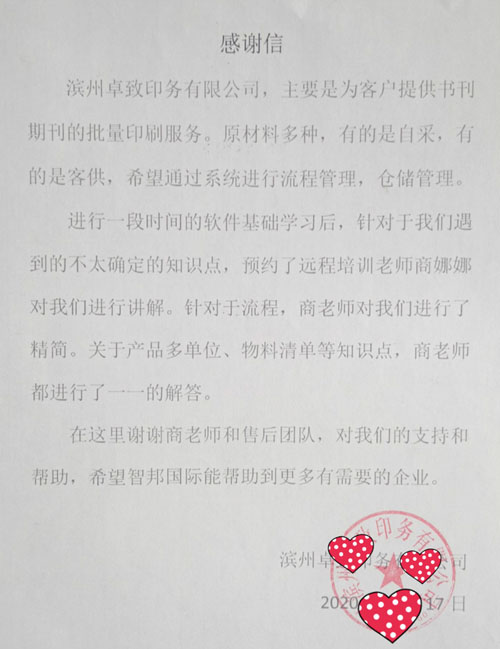 感谢信
滨州卓致印务有限公司，主要是为客户提供书刊
期刊的批量印刷服务。原材料多种，有的是自采，有
的是客供，希望通过系统进行流程管理，仓储管理。
进行一段时间的软件基础学习后，针对于我们遇
到的不太确定的知识点，预约了远程培训老师商娜娜
对我们进行讲解。针对于流程，商老师对我们进行了
精简。关于产品多单位、物料清单等知识点，商老师
都进行了一一的解答。
在这里谢谢商老师和售后团队，对我们的支持和
帮助，希望智邦国际能帮助到更多有需要的企业。
滨州卓 印务 公司
2020 17 日